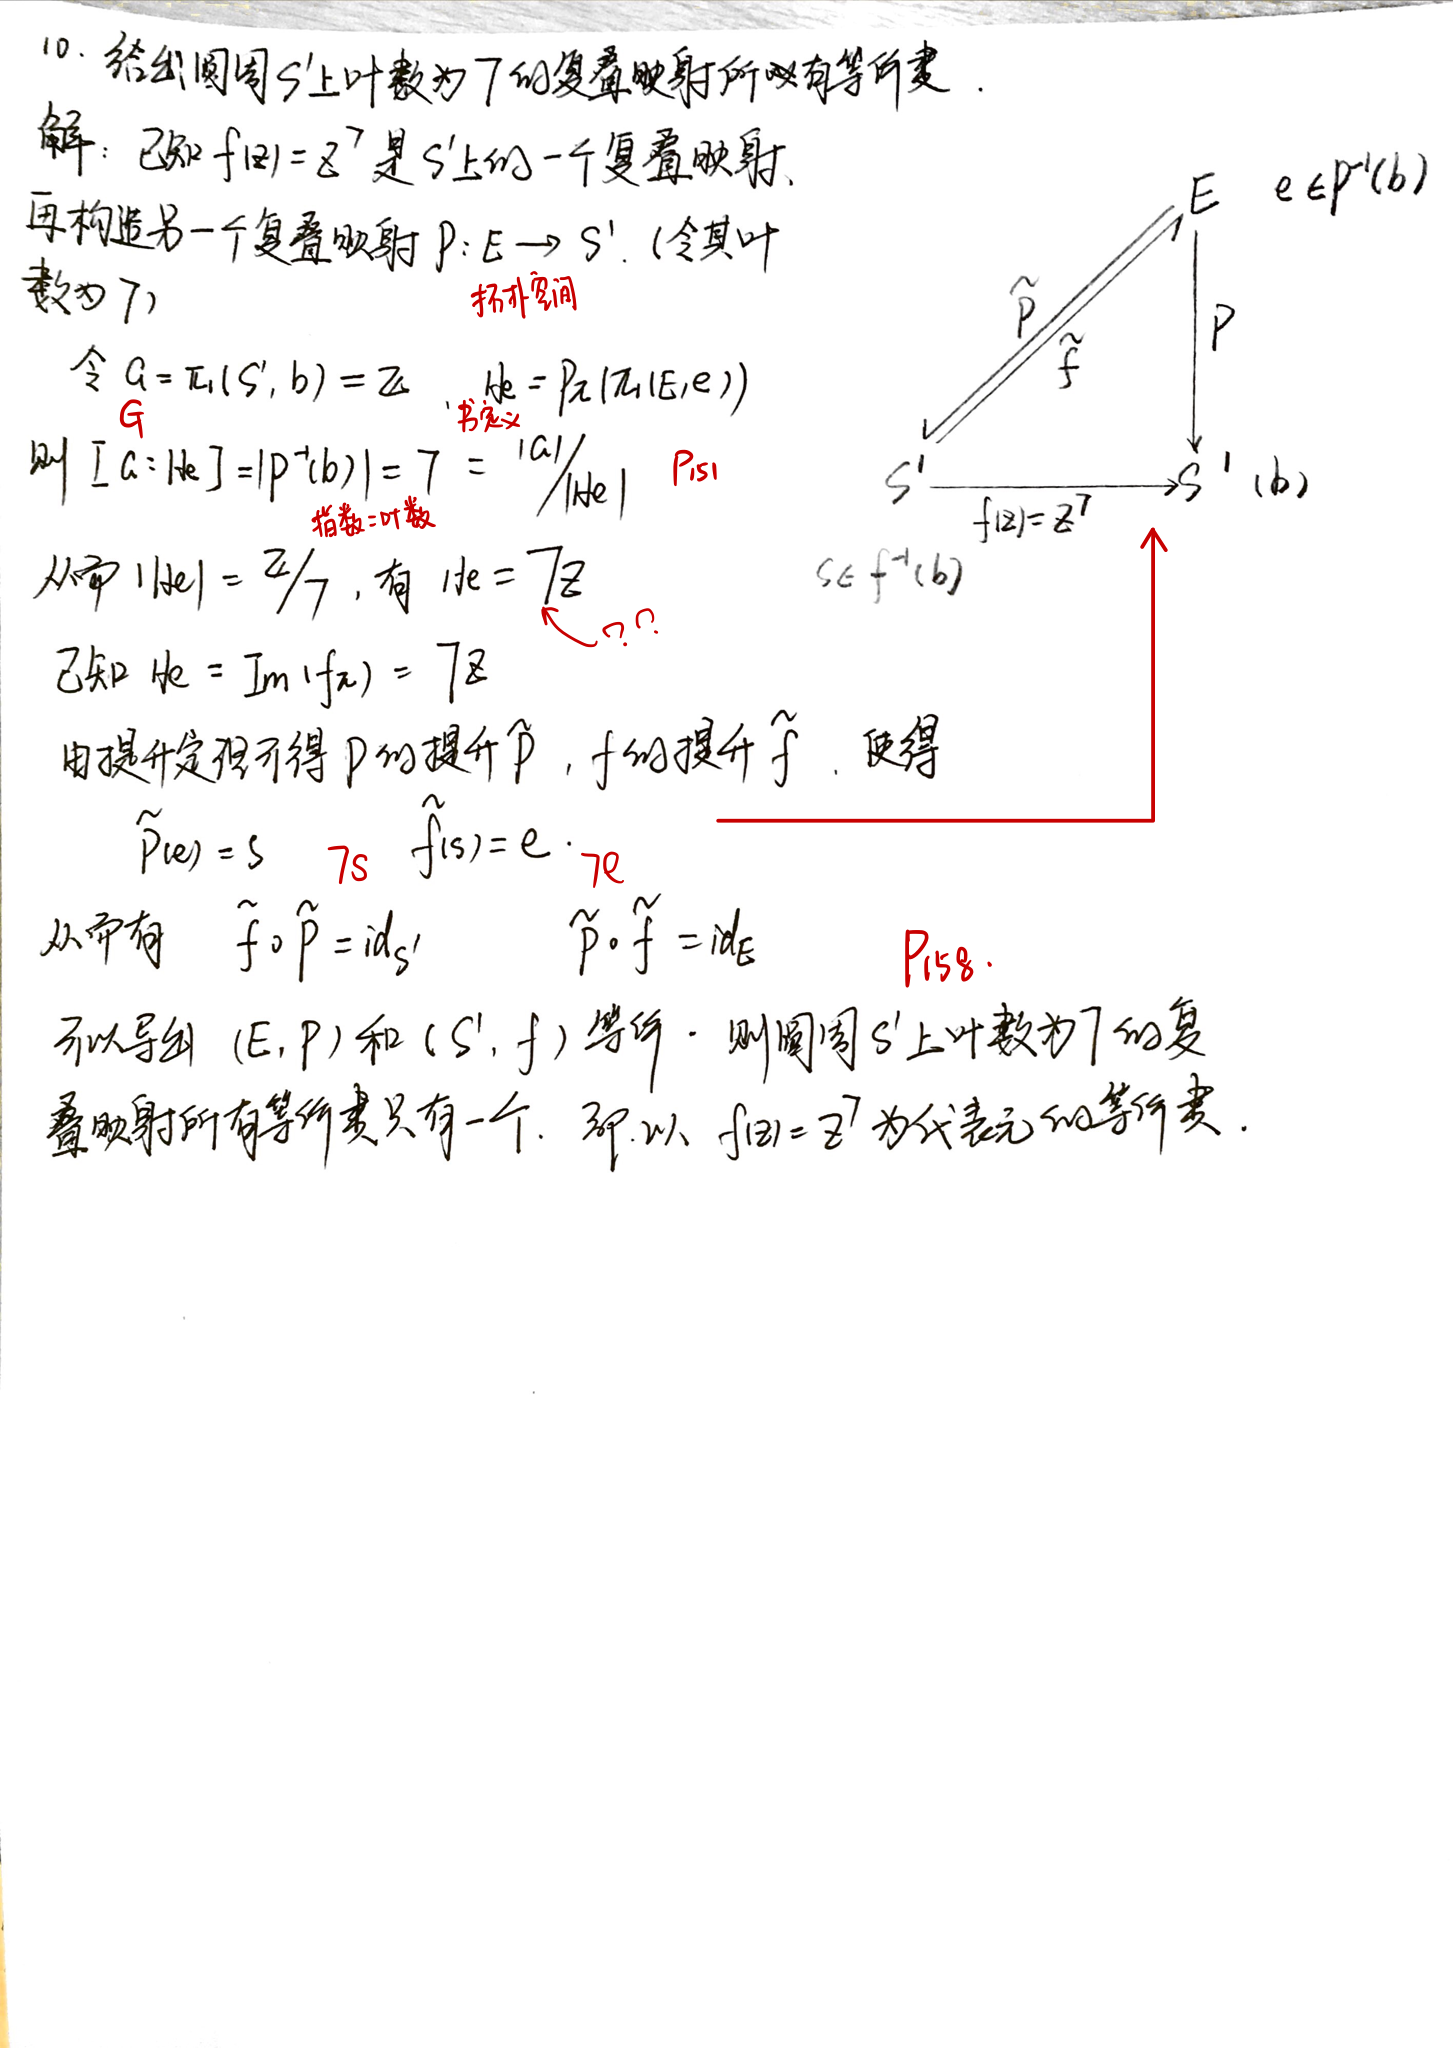 10. 给出圆周S¹上叶数为7的复叠映射所有等价类.
解: 已知 f(z)=z⁷ 是S¹上的一个复叠映射、
再构造另一个复叠映射 p: E → S¹. (令其叶
数为7)
拓扑空间
令 G = π₁(S¹, b) = Z , He = pπ(π₁(E, e))
G
书定义
则 [G : He] = |p⁻¹(b)| = 7 = |G|/|He|
P151
指数=叶数
从而 |He| = Z/7 , 有 He = 7Z
??
已知 He = Im(fπ) = 7Z
由提升定理可得 p的提升p̃ , f的提升f̃ . 使得
p̃(e) = s f̃(s) = e .
7s 7e
从而有 f̃∘p̃ = id_S¹ p̃∘f̃ = id_E
P158.
可以导出 (E, P) 和 (S¹, f) 等价 . 则圆周S¹上叶数为7的复
叠映射所有等价类只有一个. 即.以 f(z)=z⁷ 为代表元的等价类 .
E e∈p⁻¹(b)
p̃
f̃
p
S¹
S¹ (b)
f(z)=z⁷
s∈f⁻¹(b)